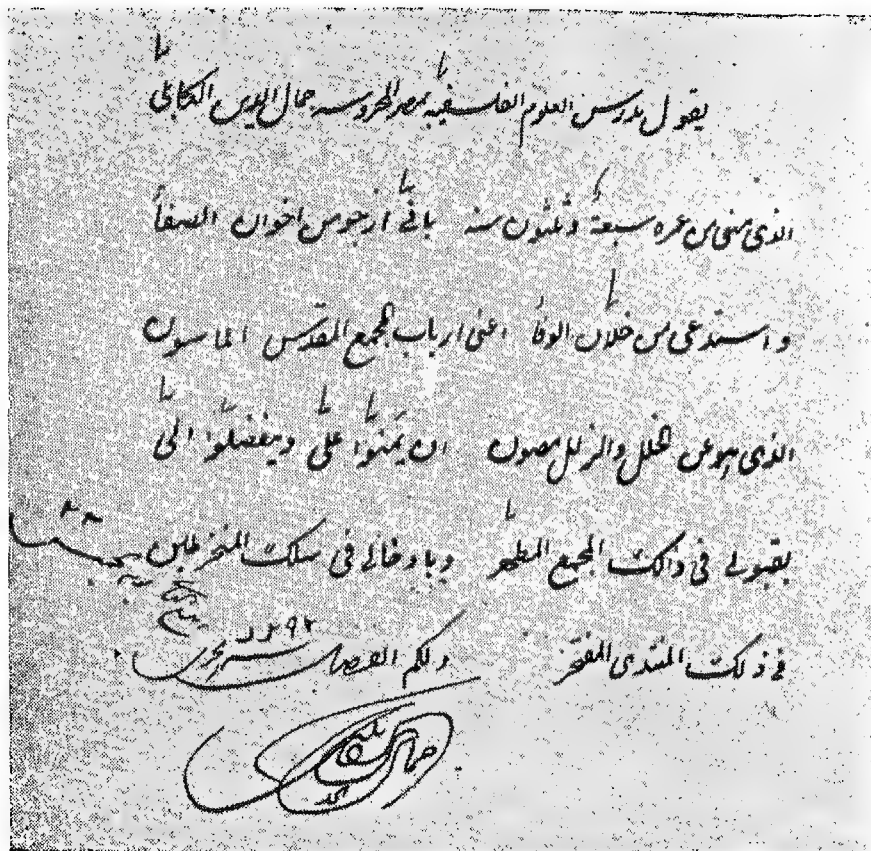 يقول مدرس العلوم الفلسفيه بمصر المحروسه جمال الدين الكابلى
الذى مضى من عمره سبعة وثلثون سنه بانى ارجو من اخوان الصفا
واستدعى من خلان الوفا اعنى ارباب المجمع المقدس الماسون
الذى هو عن الخلل والزلل مصون ان يمنوا على ويتفضلوا الى
بقبولى فى ذلك المجمع المطهر وبادخالى فى سلك المنخرطين
فى ذلك المنتدى المفتخر ولكم الفضل
٢٢
١٢٩٢
جمال الدين